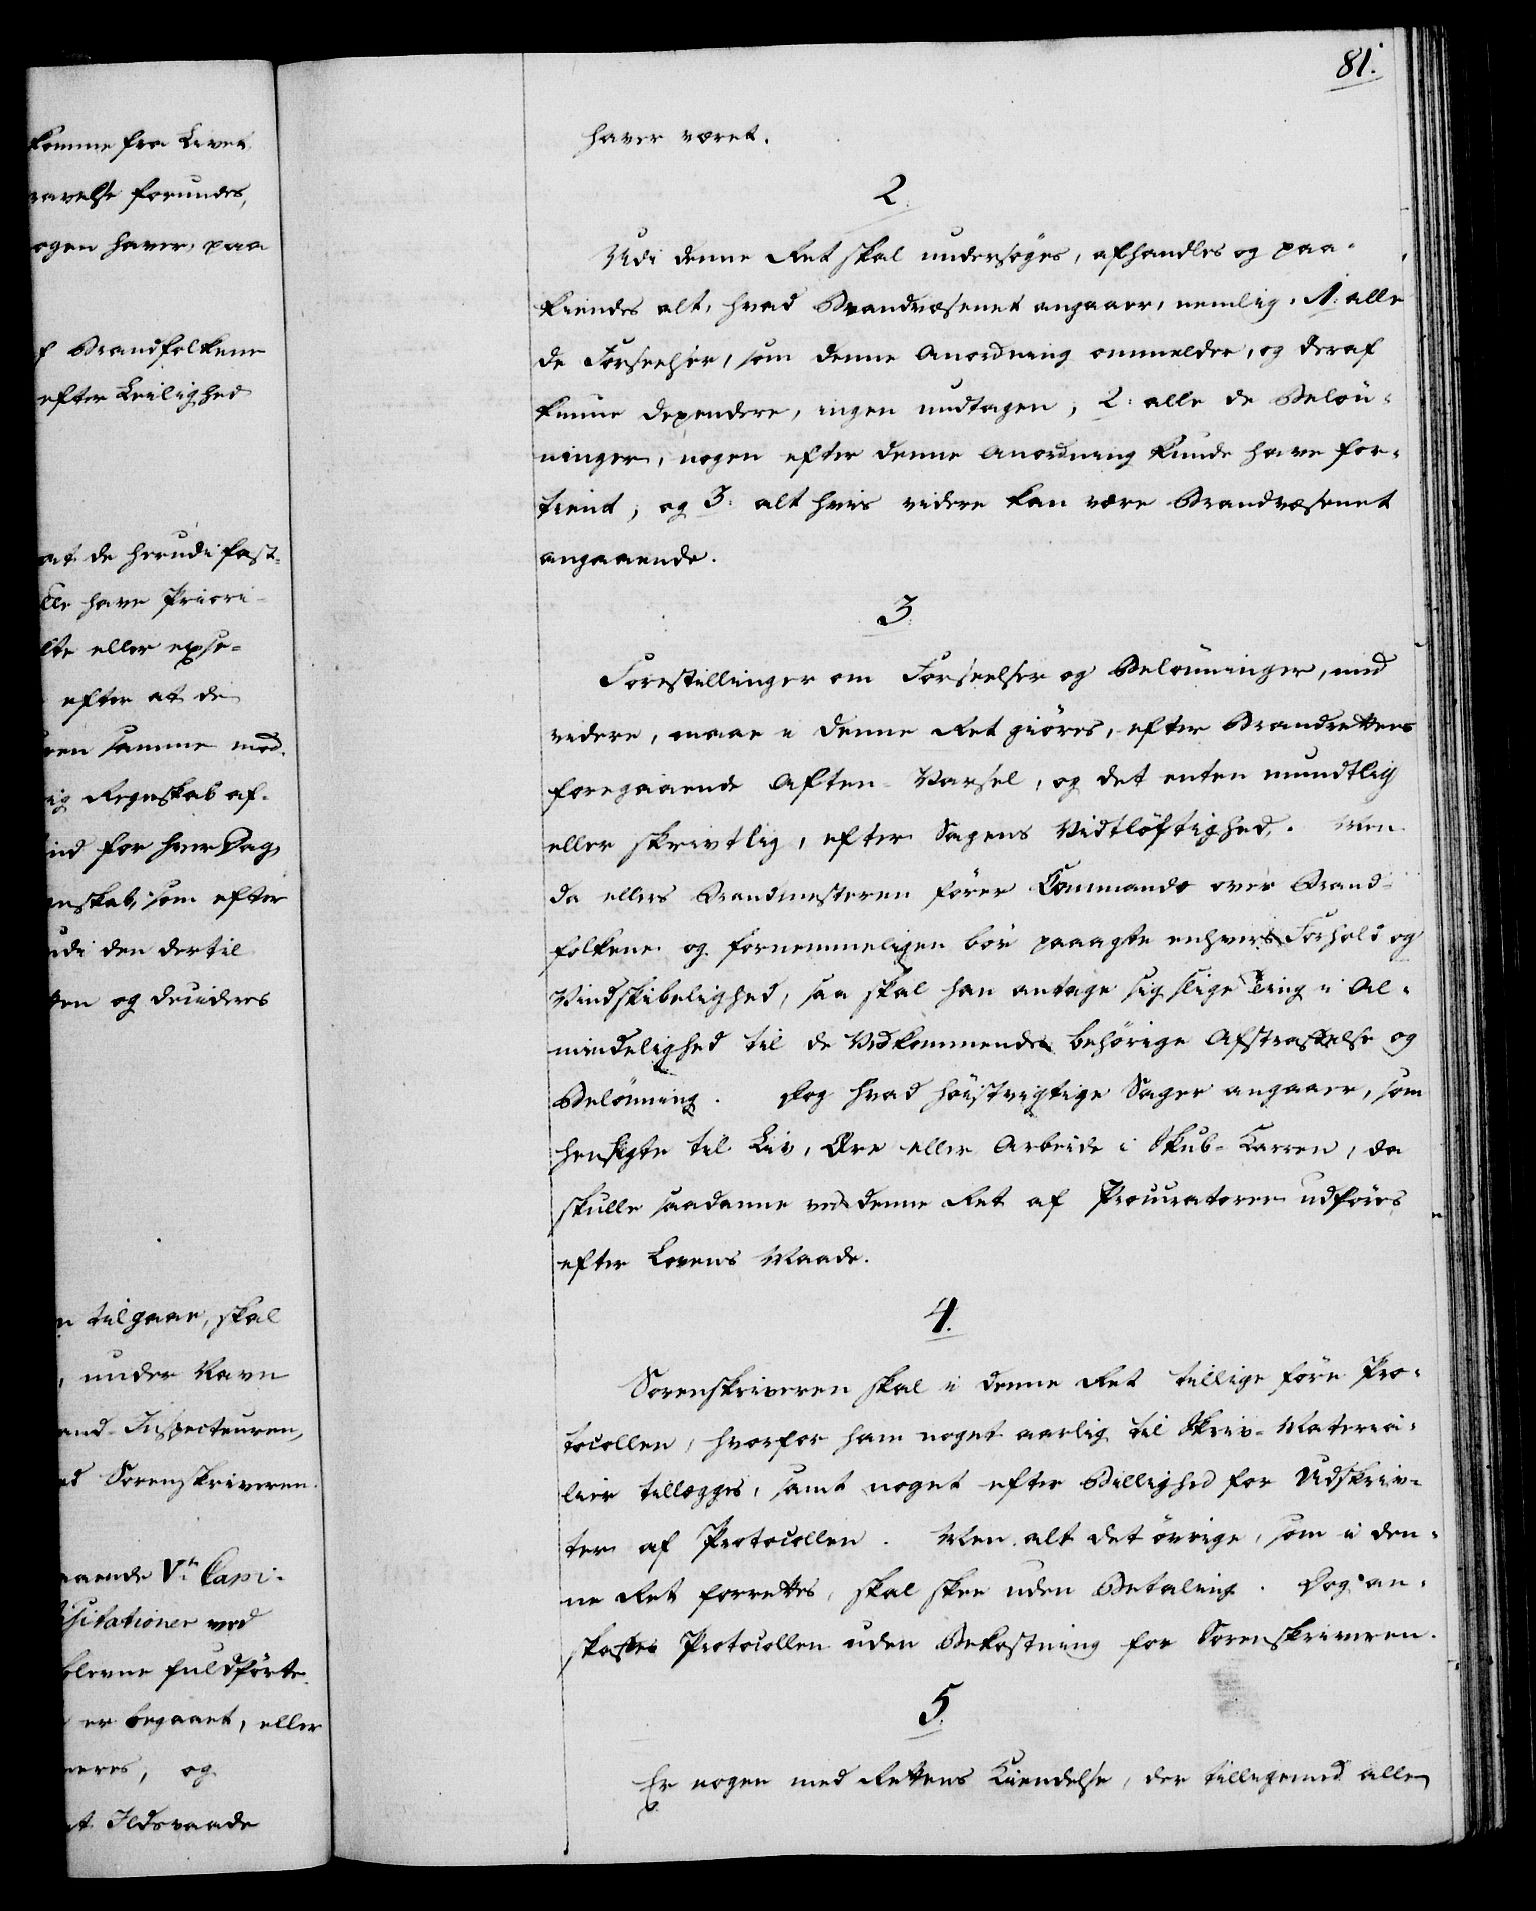 komme fra Livet
ravelse forundes,
ogen haver, paa
f Brandfolkene
efter Leilighed
at de herudi fast-
lle have Priori-
lte eller expe-
efter at de
ren samme med.
ig Regnskab af-
ind for hver Dag
nskab, som efter
udi den dertil
ten og decideres
n tilgaar, skal
, under Navn
and-Inspecteuren,
ed Sorenskriveren.
aaende V.n Capi-
isitationer ved
blevne fuldførte
er begaaet, eller
neres, og
at Ildsvaade
81.
haver været.
2.
Udi denne Ret skal undersøges, afhandles og paa-
kiendes alt, hvad Brandvæsenet angaaer, nemlig. 1: alle
de Forseelser, som denne Anordning ommelder, og deraf
kunne dependere, ingen undtagen, 2: alle de Beløn-
ninger, nogen efter denne Anordning kunde have for-
tient, og 3: alt hvis videre kan være Brandvæsenet
angaaende.
3.
Forestillinger om Forseelser og Belønninger, med
videre, maae i denne Ret giøres, efter Brandrettens
foregaaende Aften-Varsel, og det enten mundtlig
eller skrivtlig, efter Sagens Vidtløftighed. Men
da ellers Brandmesteren fører Commando over Brand-
folkene og fornemmeligen bør paaagte enhvers Forhold og
Vindskibelighed, saa skal han antage sig slige Ting i Al-
mindelighed til de Vedkommendes behørige Afstraffelse og
Belønning. Dog hvad høistvigtige Sager angaaer, som
hensigte til Liv, Ære eller Arbeide i Skub-Karren, da
skulle saadanne ved denne Ret af Procuratorer udføres
efter Lovens Maade.
4.
Sorenskriveren skal i denne Ret tillige føre Pro-
tocollen, hvorfor ham noget aarlig til Skriv-Materia-
lier tillægges, samt noget efter Billighed for Udskriv-
ter af Protocollen. Men alt det øvrige, som i den-
ne Ret forrettes, skal skee uden Betaling. Dog an-
skaffes Protocollen uden Bekostning for Sorenskriveren.
5.
Er nogen med Rettens Kiendelse, der tilligemed alle